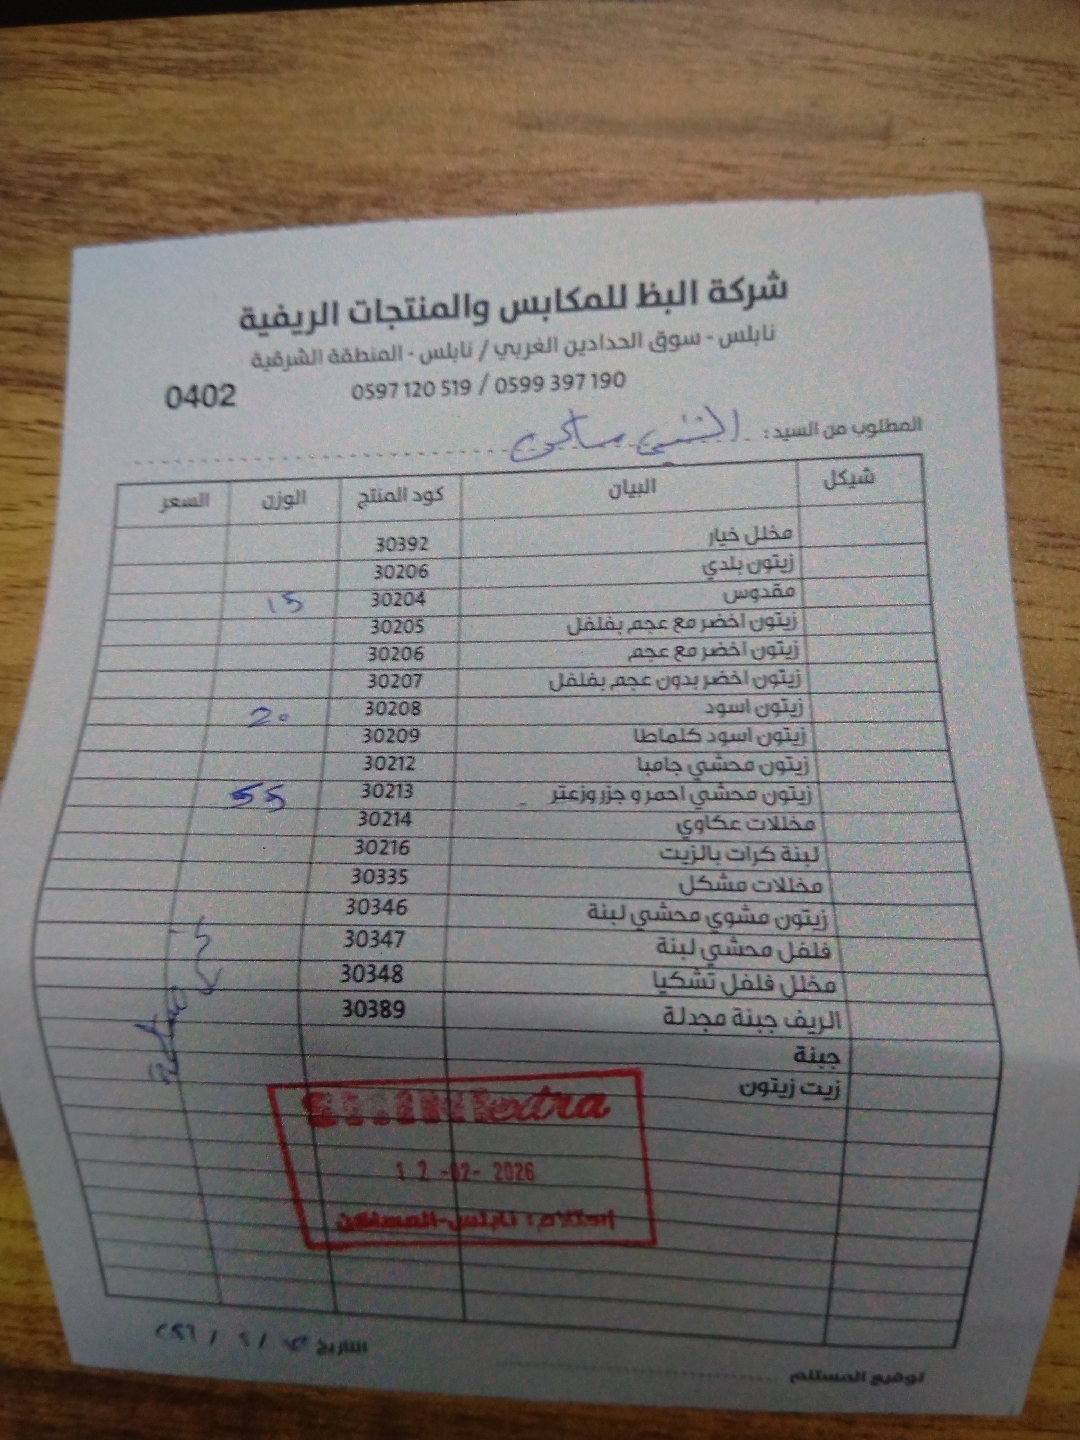 شركة البظ للمكابس والمنتجات الريفية
نابلس - سوق الحدادين الغربي / نابلس - المنطقة الشرقية
0597 120 519 / 0599 397 190
0402
المطلوب من السيد:
شيكل البيان كود المنتج الوزن السعر
مخلل خيار 30392
زيتون بلدي 30206
مقدوس 30204 15
زيتون اخضر مع عجم بفلفل 30205
زيتون اخضر مع عجم 30206
زيتون اخضر بدون عجم بفلفل 30207
زيتون اسود 30208 20
زيتون اسود كلماطا 30209
زيتون محشي جامبا 30212
زيتون محشي احمر و جزر وزعتر 30213 55
مخللات عكاوي 30214
لبنة كرات بالزيت 30216
مخللات مشكل 30335
زيتون مشوي محشي لبنة 30346
فلفل محشي لبنة 30347
مخلل فلفل تشكيا 30348
الريف جبنة مجدلة 30389
جبنة
زيت زيتون
extra
12-02-2026
إستلام: نابلس-المساكن
التاريخ
توقيع المستلم